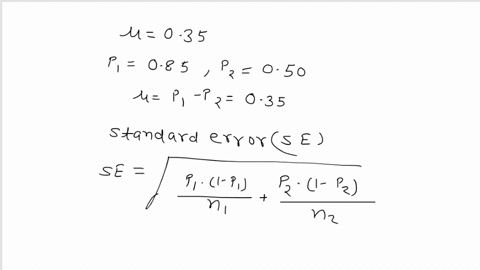 μ = 0.35
P₁ = 0.85 , P₂ = 0.50
μ = P₁ - P₂ = 0.35
standard error (SE)
SE = √( P₁·(1-P₁)/n₁ + P₂·(1-P₂)/n₂ )